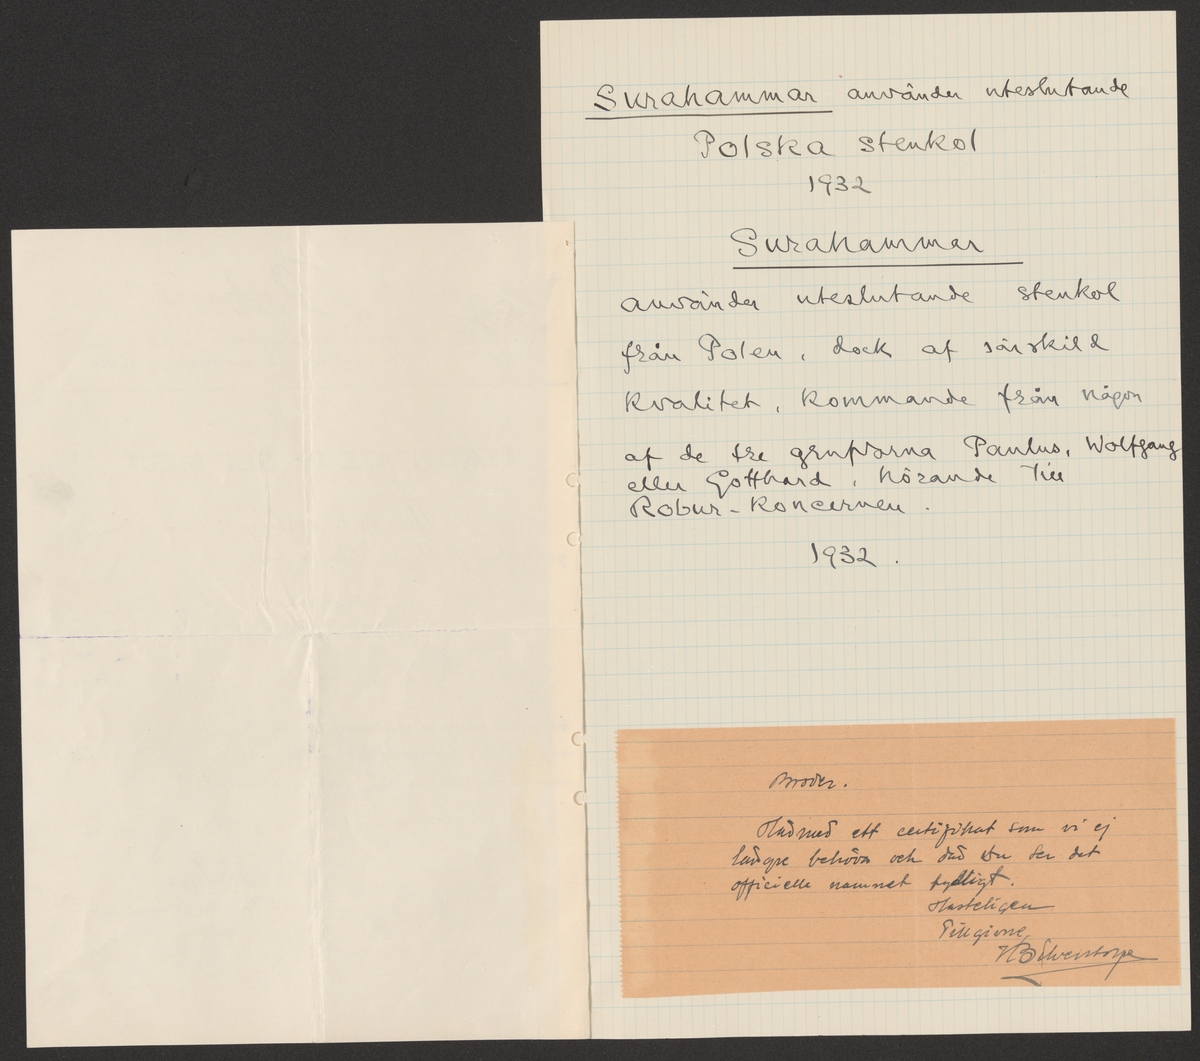 Surahammar använder uteslutande
Polska stenkol
1932
Surahammar
använder uteslutande stenkol
från Polen, dock af särskild
kvalitet, kommande från någon
af de tre grufvorna Paulus, Wolfgang
eller Gotthard, hörande till
Robur-koncernen.
1932.
Broder.
Härmed ett certifikat som vi ej
längre behöva och där Du ser det
officielle namnet tydligt.
Hasteligen
Tillgivne